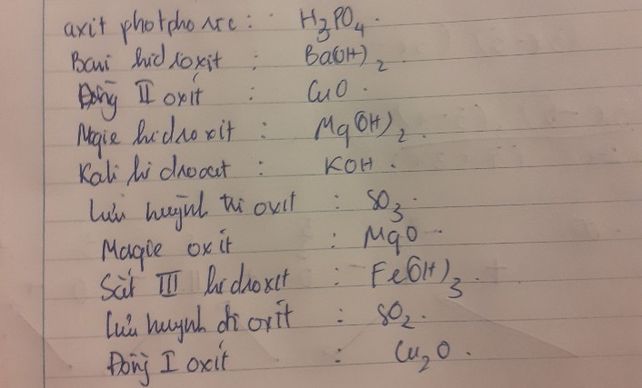 axit photphoric : H₃PO₄.
Bari hidroxit : Ba(OH)₂
Đồng II oxit : CuO.
Magie hidroxit : Mg(OH)₂.
Kali hidroxit : KOH.
Lưu huỳnh tri oxit : SO₃.
Magie oxit : MgO.
Sắt III hidroxit : Fe(OH)₃.
Lưu huỳnh đi oxit : SO₂.
Đồng I oxit : Cu₂O.